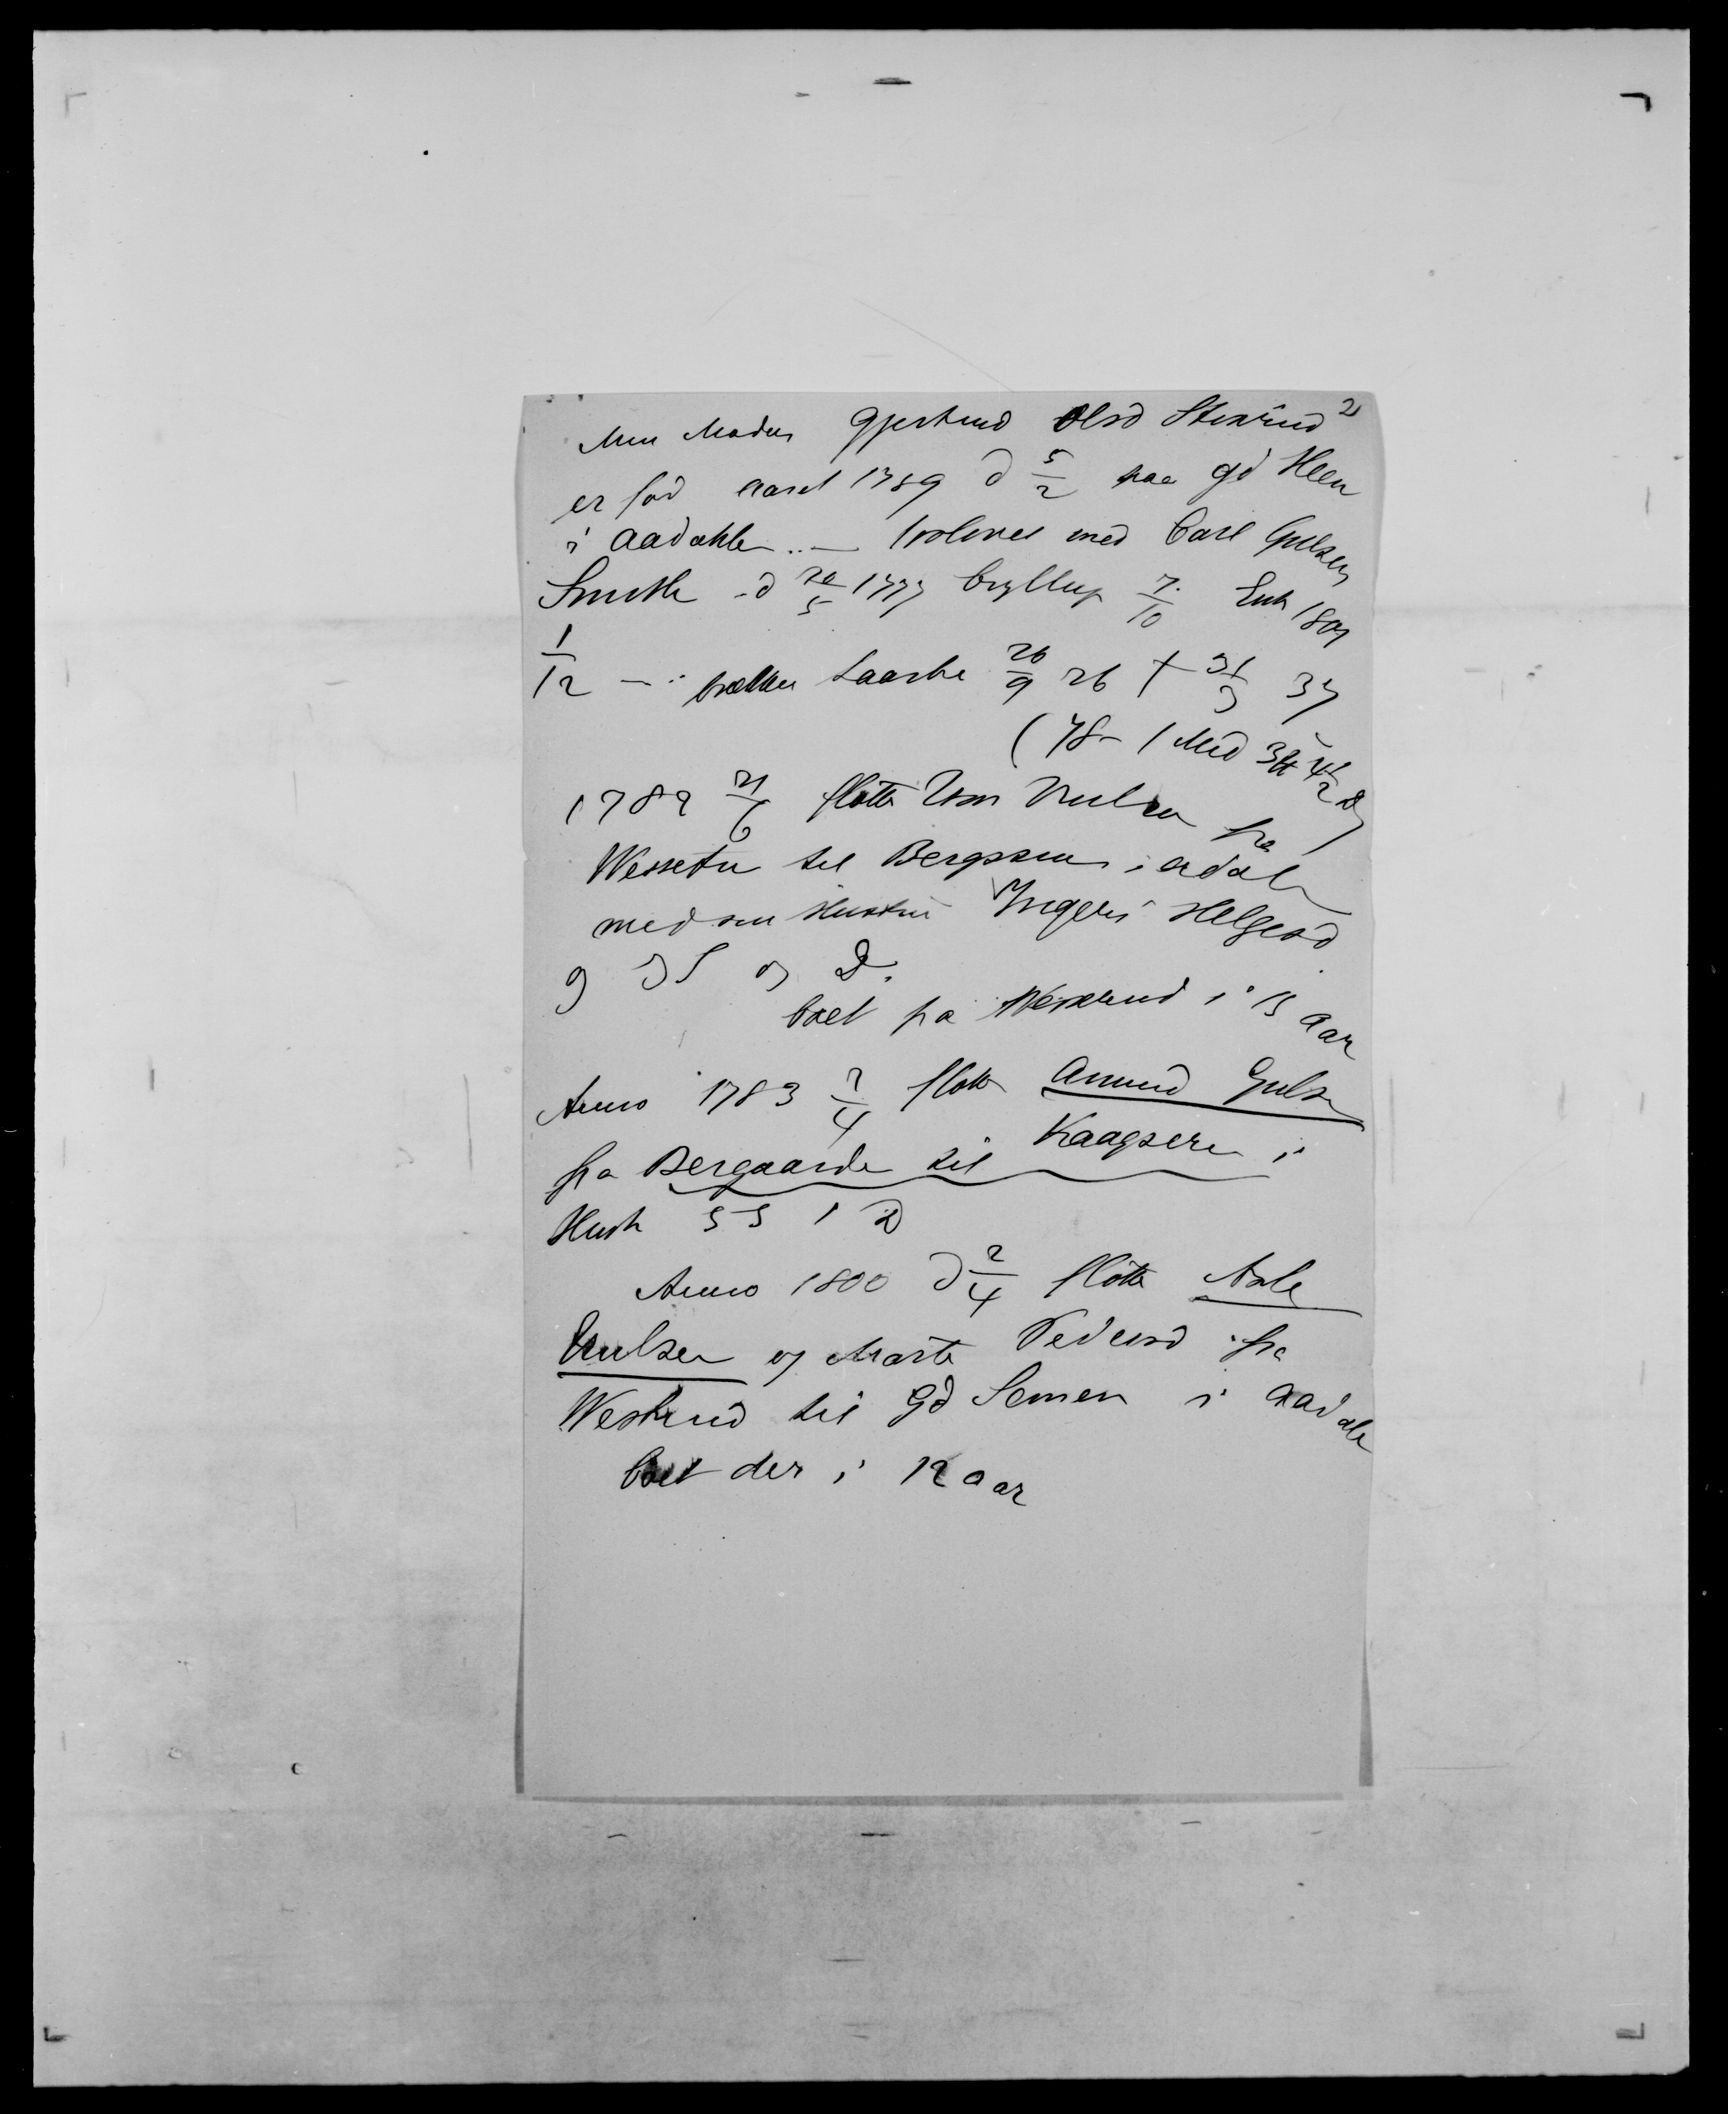 Min Moder Gjertrud Olsd Stexrud 2
er fød aaret 1759 d 5/2 paa gd Heen
i Aadahlen .. — trolovet med Carl Gulsen
d 20/5 1777 bryllup 7/10 Enk 1807
1/12 — brækker Laarbe 26/9 26 † 31/3 37
(78 - 1 Md 3
1782 21/6 flötte Knudsen fra
til Bergssun i Aadalen
med sin Hustru Ingeri Helgesd
og 3 S og D.
boet fra i 13 aar
Anno 1783 2/4 flötte Amund Guls
fra Bergaarde til Kaagseren i
Hust 5 S 1 D
Anno 1800 d 2/4 flötte Asle
Knudsen og Marte Pedersd fra
Westrud til Gd Semen i Aadale
boet der i 12 aar